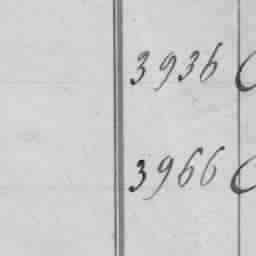 3936
3966